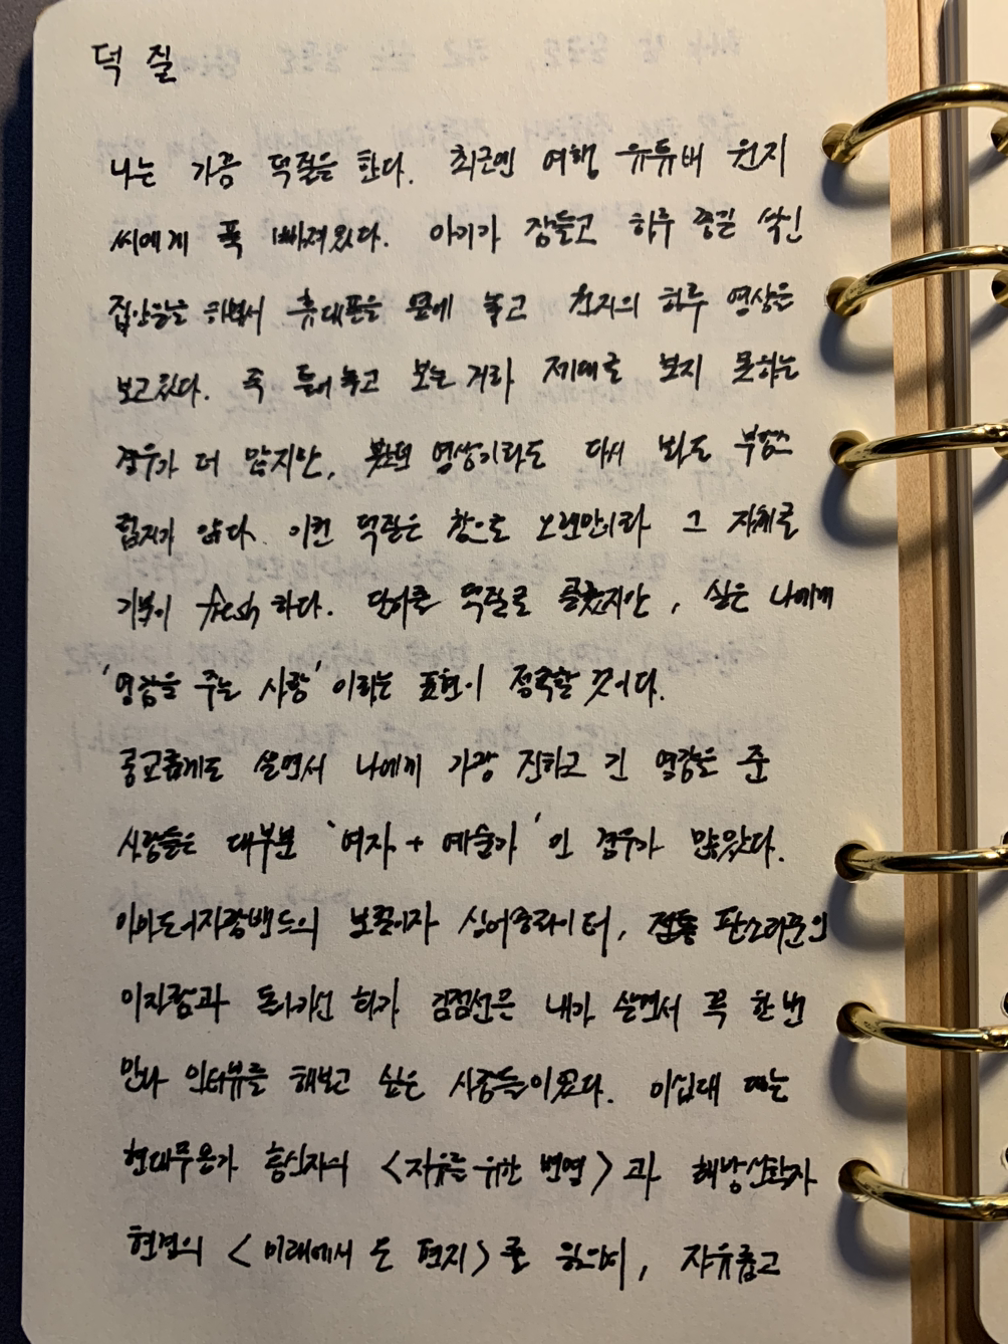 덕 질
나는 가끔 덕질을 한다. 최근엔 여행 유튜버 원지
씨에게 푹 빠져있다. 아기가 잠들고 하루 종일 쌓인
집안일을 하면서 휴대폰을 옆에 놓고 원지의 하루 영상을
보고있다. 죽 틀어놓고 보는거라 제대로 보지 못하는
경우가 더 많지만, 봤던 영상이라도 다시 봐도 부담스
럽지가 않다. 이런 덕질은 참으로 오랜만이라 그 자체로
기분이 fresh하다. 단어를 덕질로 골랐지만, 실은 나에게
'영감을 주는 사람'이라는 표현이 정확할 것이다.
공교롭게도 살면서 나에게 가장 진하고 긴 영감을 준
사람들은 대부분 '여자+예술가'인 경우가 많았다.
아마도이자람밴드의 보컬이자 싱어송라이터, 전통 판소리꾼인
이자람과 돌아가신 화가 김점선은 내가 살면서 꼭 한번
만나 인터뷰를 해보고 싶은 사람들이었다. 이십대 때는
현대무용가 홍신자의 <자유를 위한 변명>과 해방신학자
현경의 <미래에서 온 편지>를 읽으며, 자유롭고